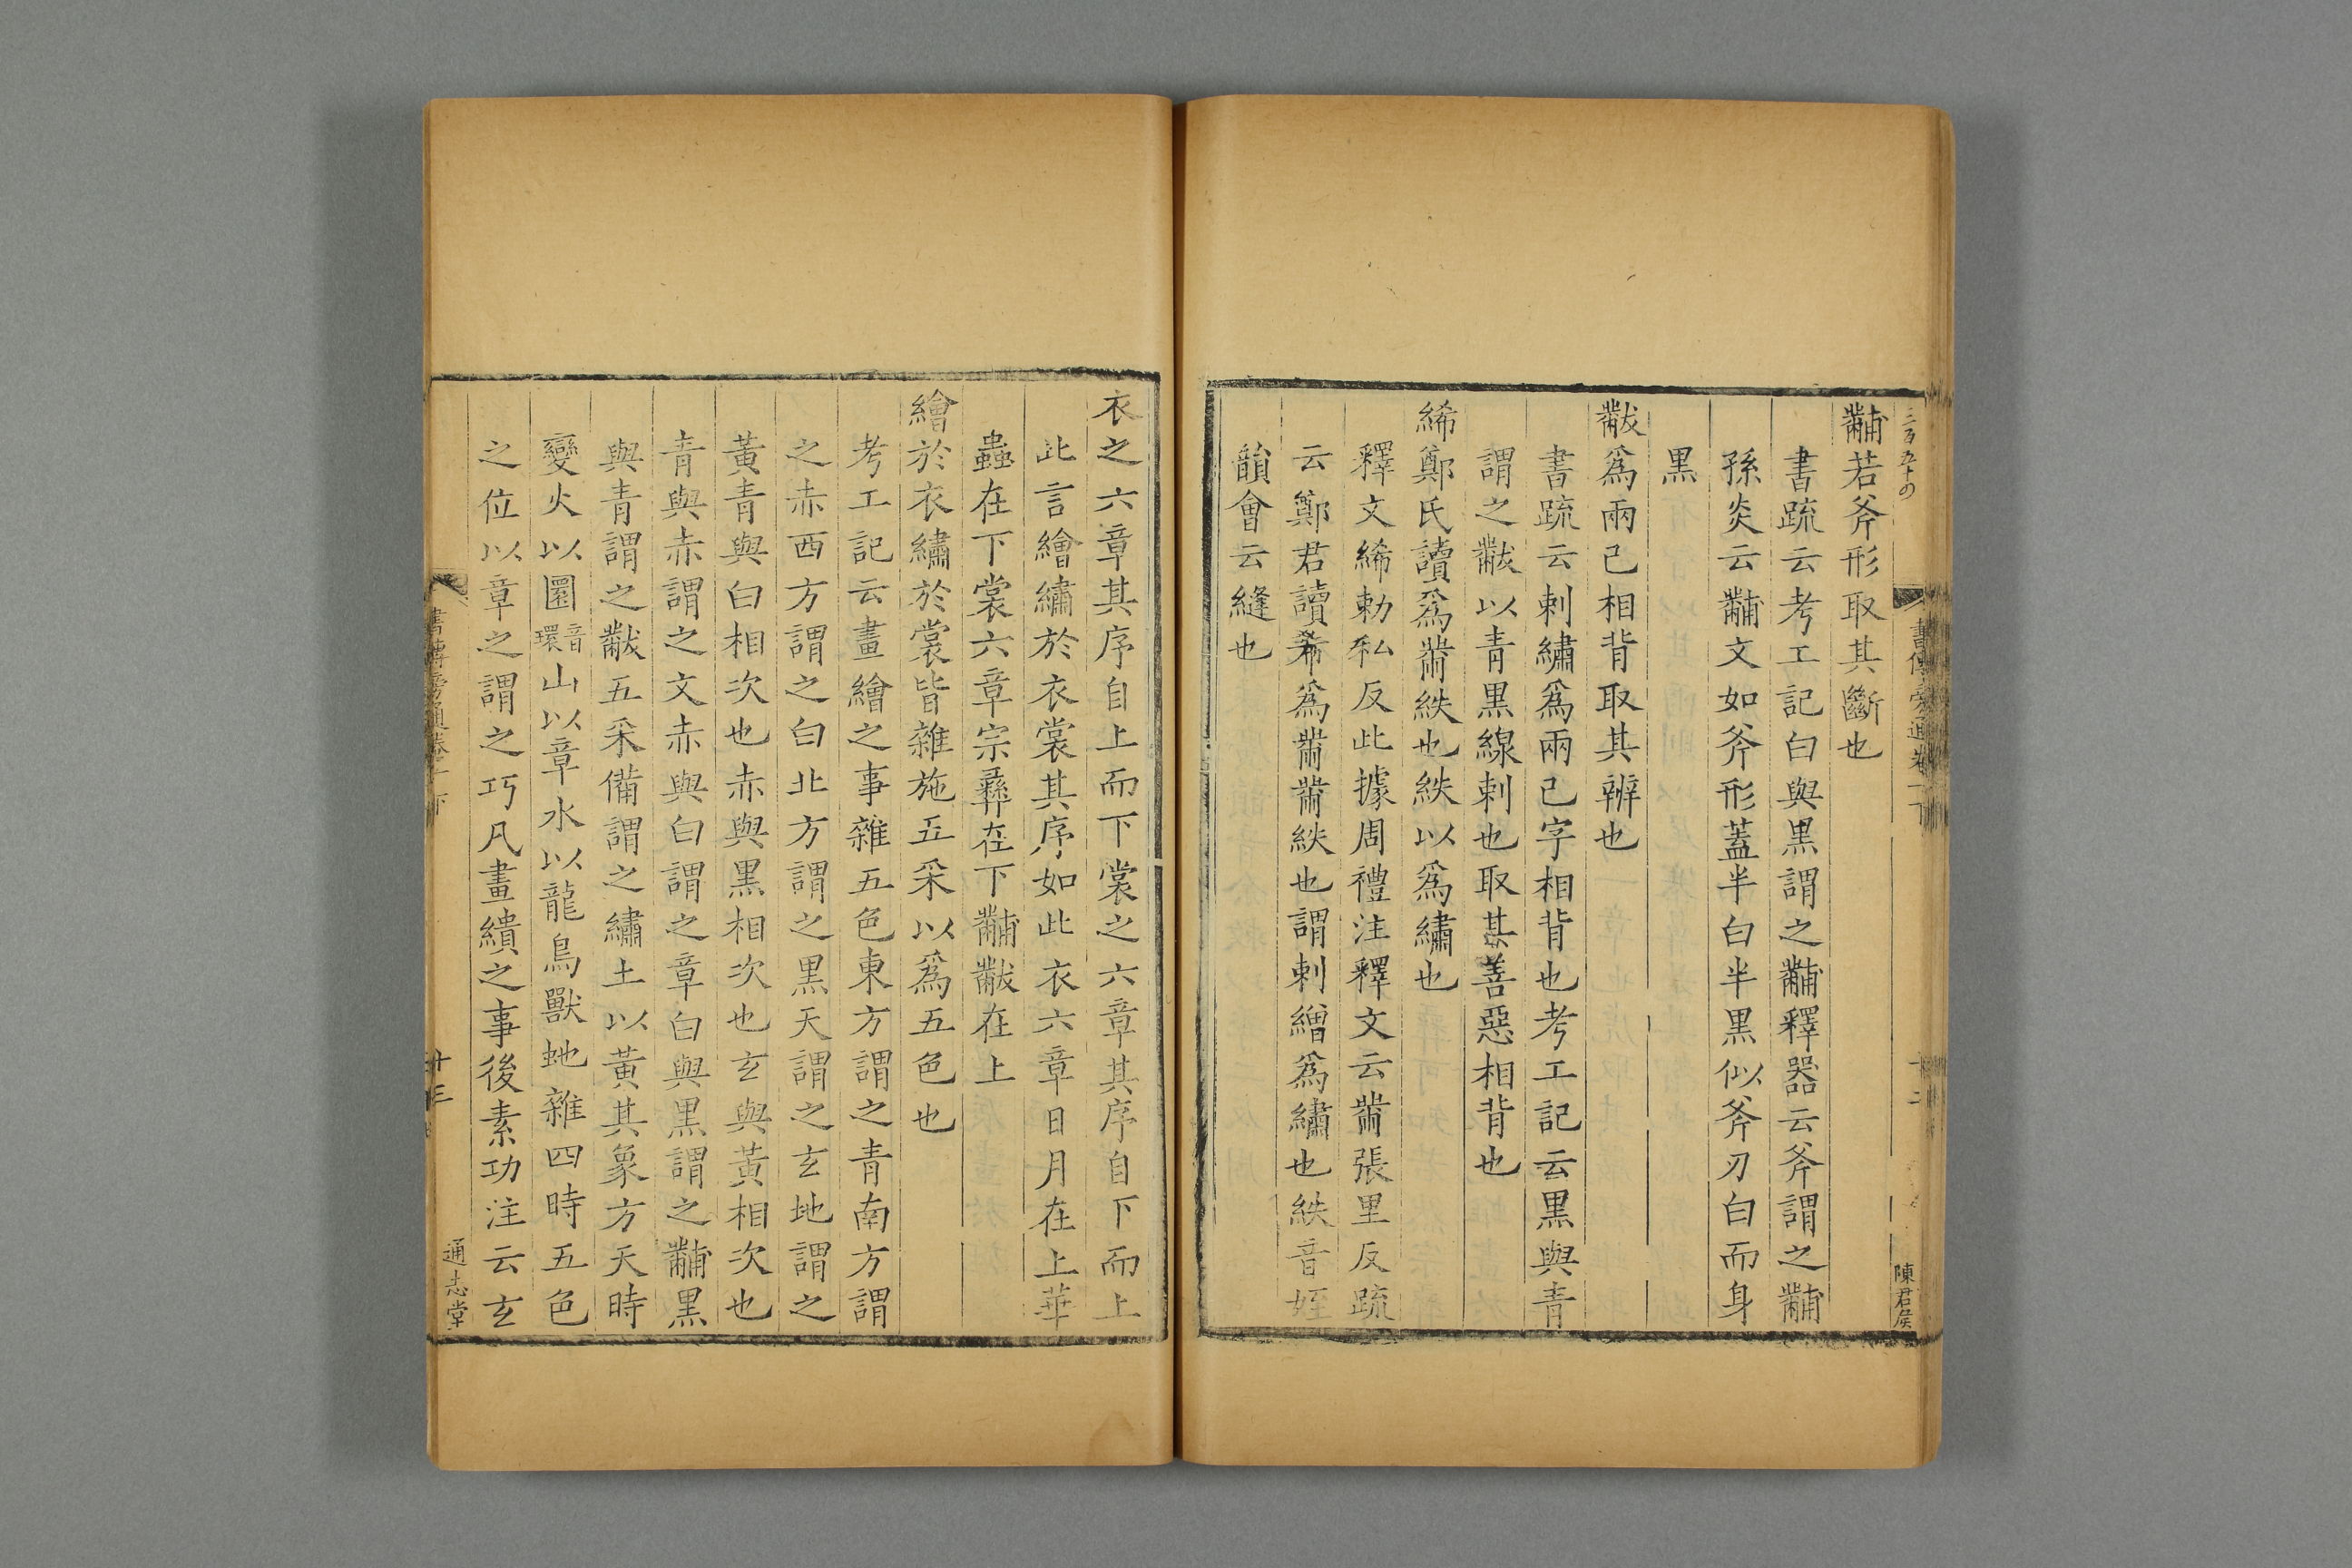 黼若斧形取其斷也
書疏云考工記白與黒謂之黼釋器云斧謂之黼
孫炎云黼文如斧形蓋半白半黒似斧刃白而身
黒
黻爲兩己相背取其辨也
書疏云刺繡爲兩己字相背也考工記云黒與青
謂之黻以青黒線刺也取其善惡相背也
絺鄭氏讀爲黹紩也紩以爲繡也
釋文絺勅私反此據周禮注釋文云黹張里反疏
云鄭君讀希爲黹黹紩也謂刺繒爲繡也紩音姪
韻會云縫也
陳君侯
衣之六章其序自上而下裳之六章其序自下而上
此言繪繡於衣裳其序如此衣六章日月在上華
蟲在下裳六章宗彝在下黼黻在上
繪於衣繡於裳皆雜施五采以爲五色也
考工記云畫繪之事雜五色東方謂之青南方謂
之赤西方謂之白北方謂之黒天謂之玄地謂之
黃青與白相次也赤與黒相次也玄與黃相次也
青與赤謂之文赤與白謂之章白與黒謂之黼黒
與青謂之黻五采備謂之繡土以黃其象方天時
變火以圜音環山以章水以龍鳥獸虵雜四時五色
之位以章之謂之巧凡畫繢之事後素功注云玄
書傳旁通卷一下
十三
通志堂